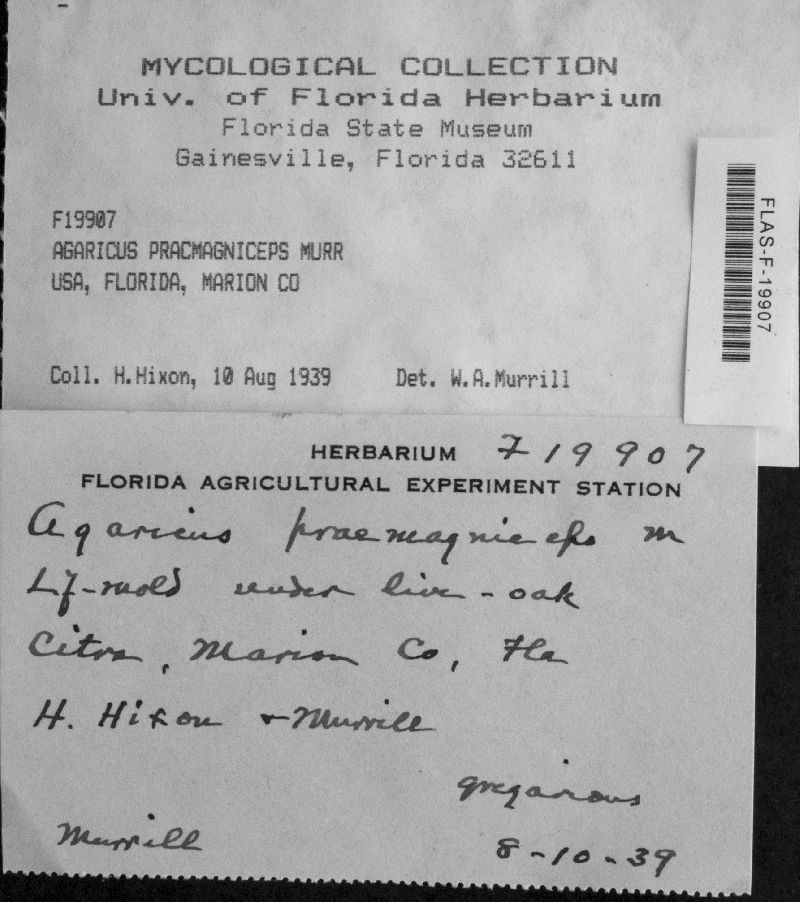 MYCOLOGICAL COLLECTION
Univ. of Florida Herbarium
Florida State Museum
Gainesville, Florida 32611
F19907
AGARICUS PRACMAGNICEPS MURR
USA, FLORIDA, MARION CO
Coll. H.Hixon, 10 Aug 1939 Det. W.A.Murrill
FLAS-F-19907
HERBARIUM F19907
FLORIDA AGRICULTURAL EXPERIMENT STATION
Agaricus praemagniceps M
Lf-mold under live-oak
Citra, Marion Co, Fla
H. Hixon & Murrill
gregarious
Murrill
8-10-39